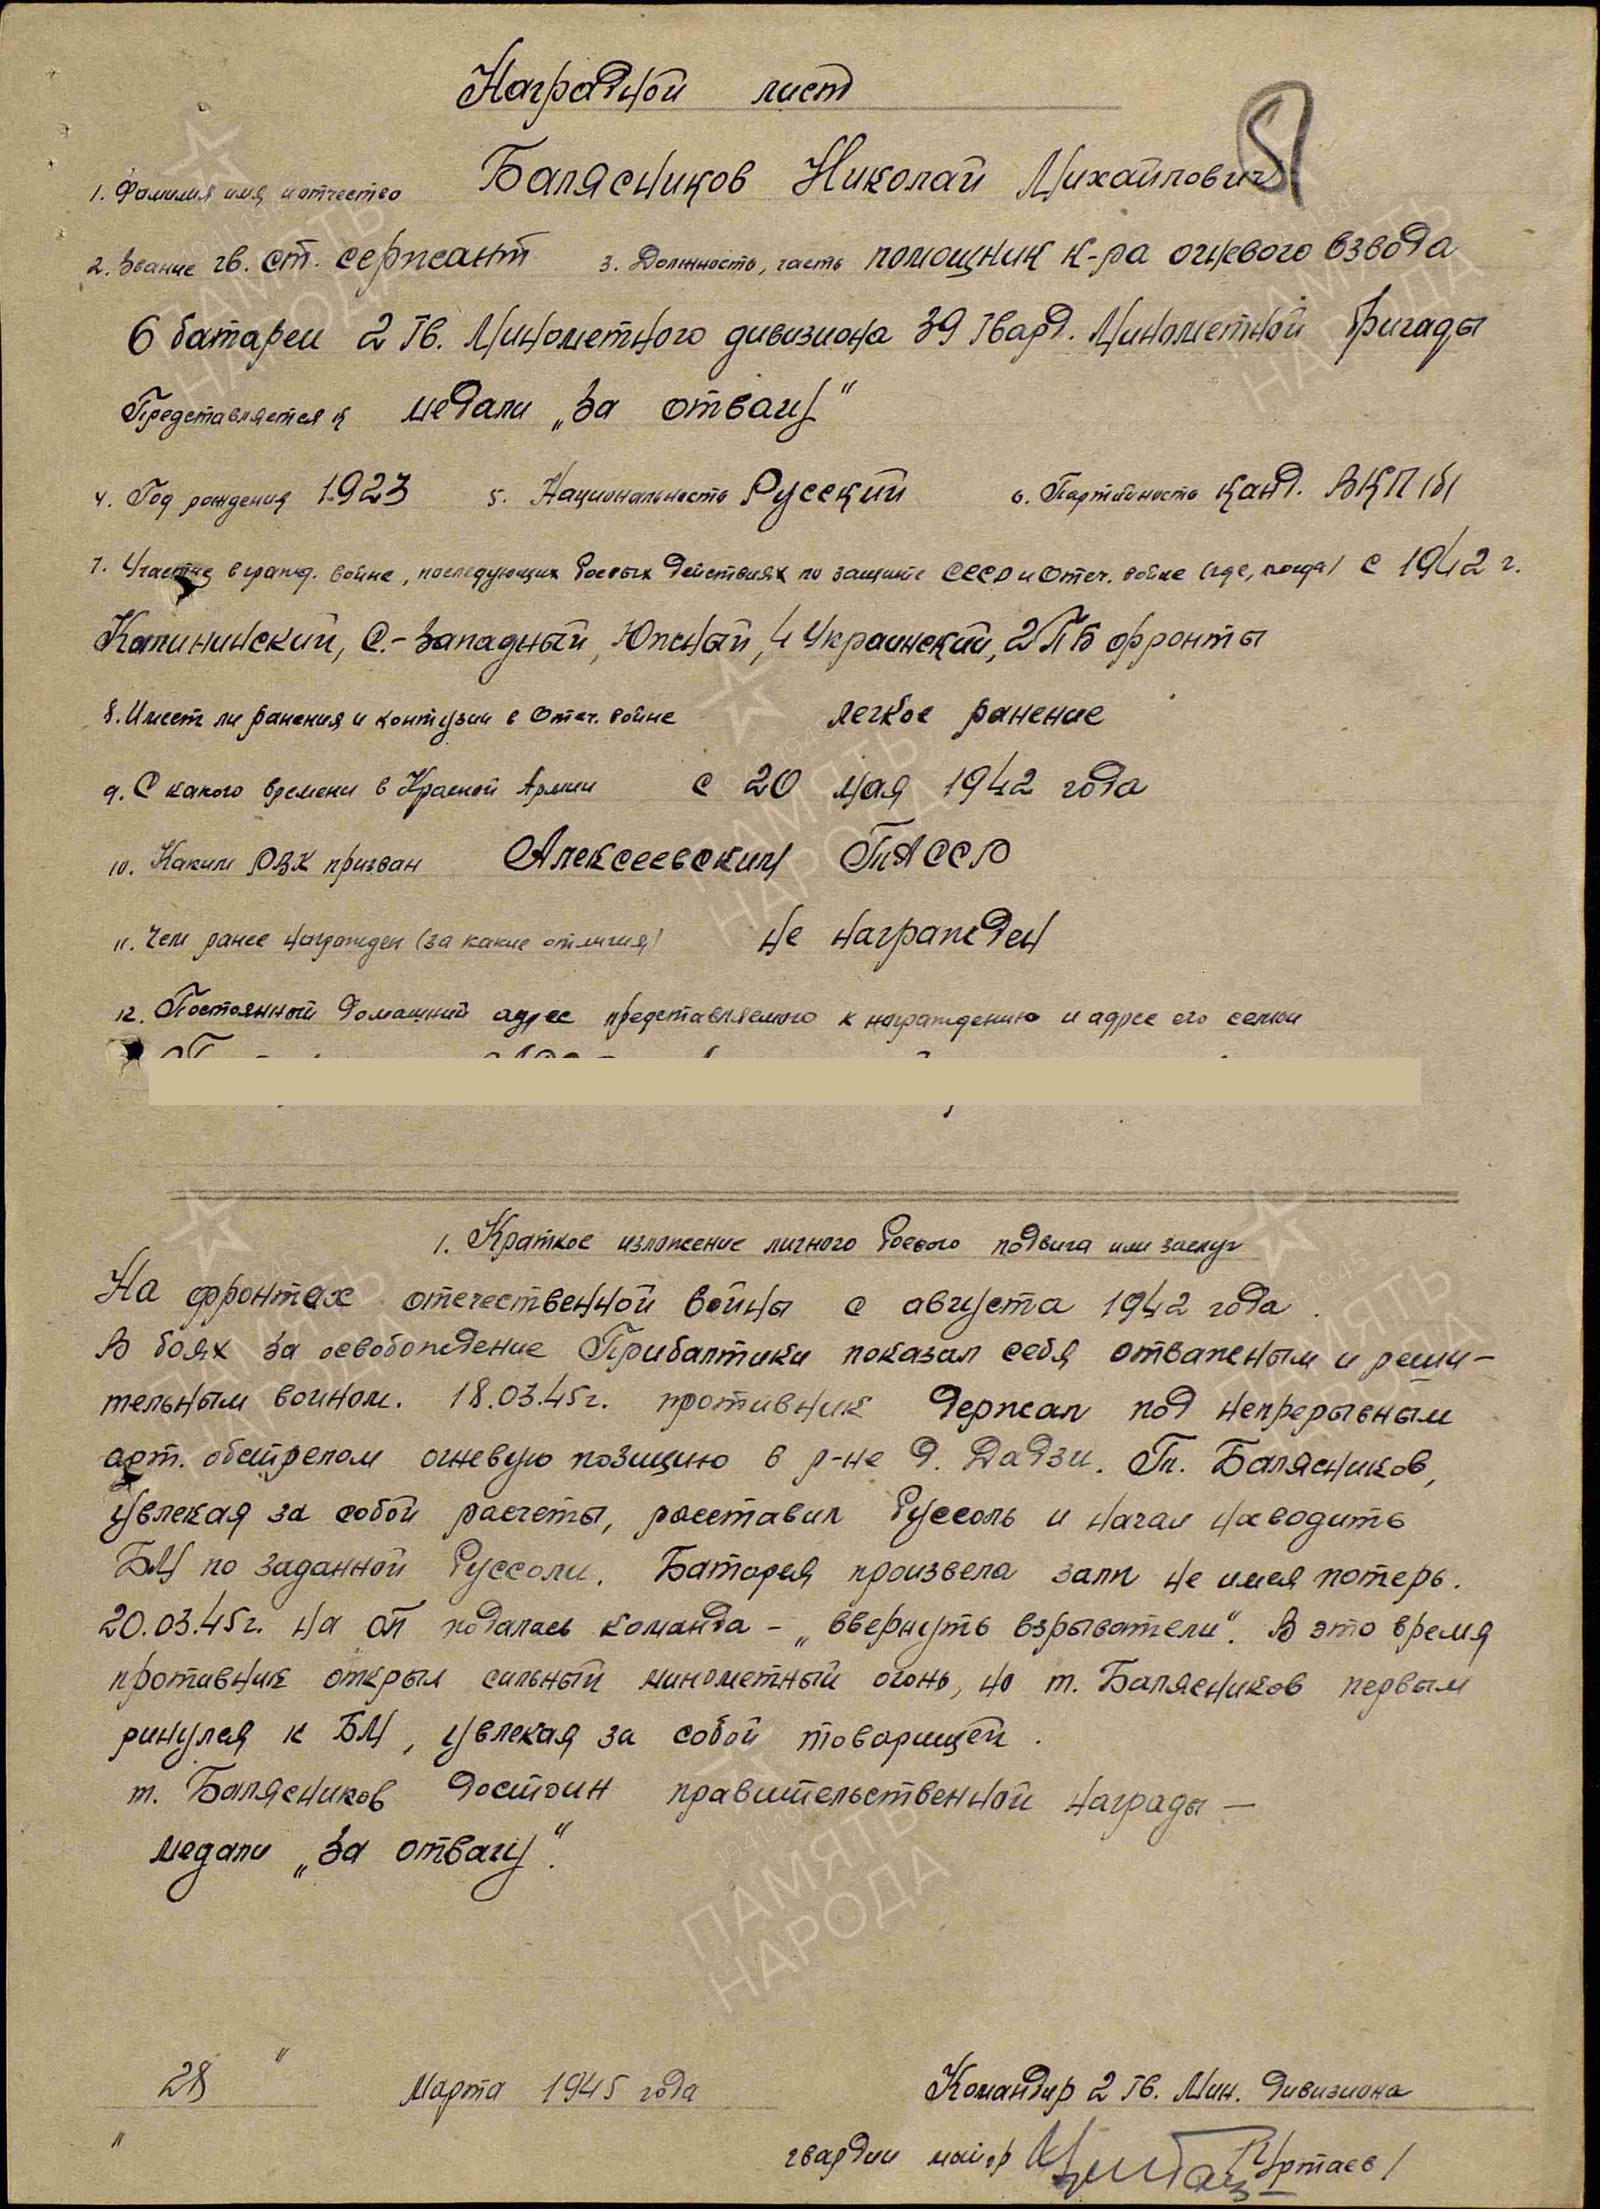 Наградной лист
1. Фамилия имя и отчество Балясников Николай Михайлович
2. Звание гв. ст. сержант 3. Должность, часть помощник к-ра огневого взвода
6 батареи 2 Гв. Минометного дивизиона 39 Гвард. Минометной бригады
Представляется к медали „За отвагу“
4. Год рождения 1923 5. Национальность Русский 6. Партийность канд. ВКП/б/
7. Участие в гражд. войне, последующих боевых действиях по защите СССР и Отеч. войне (где, когда) с 1942 г.
Калининский, С.-Западный, Южный, 4 Украинский, 2 ПБ фронты
8. Имеет ли ранения и контузии в Отеч. войне легкое ранение
9. С какого времени в Красной Армии с 20 мая 1942 года
10. Каким РВК призван Алексеевским ТАССР
11. Чем ранее награжден (за какие отличия) не награжден
12. Постоянный домашний адрес представляемого к награждению и адрес его семьи
1. Краткое изложение личного боевого подвига или заслуг
На фронтах отечественной войны с августа 1942 года.
В боях за освобождение Прибалтики показал себя отважным и реши-
тельным воином. 18.03.45г. противник держал под непрерывным
арт. обстрелом огневую позицию в р-не д. Дадзи. Гв. Балясников,
увлекая за собой расчеты, расставил буссоль и начал наводить
БМ по заданной буссоли. Батарея произвела залп не имея потерь.
20.03.45г. на ОП подалась команда – „ввернуть взрыватели“. В это время
противник открыл сильный минометный огонь, но т. Балясников первым
ринулся к БМ, увлекая за собой товарищей.
т. Балясников достоин правительственной награды –
медали „За отвагу“.
28 " Марта 1945 года Командир 2 Гв. Мин. дивизиона
" гвардии майор /Уртаев/
ПАМЯТЬ
НАРОДА